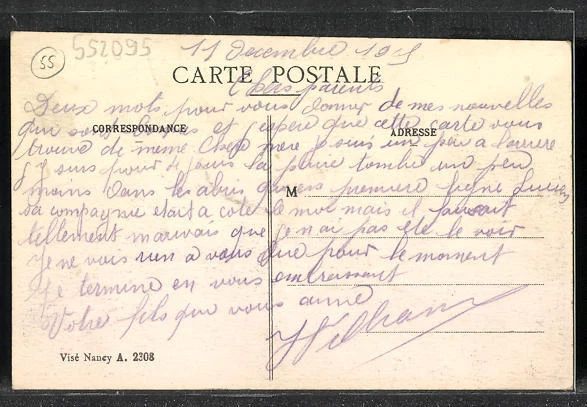 55
552095
11 decembre 19
CARTE POSTALE
Chers parents
Deux mots pour vous donner de mes nouvelles
CORRESPONDANCE
ADRESSE
que sont bonnes et j'espere que cette carte vous
trouve de meme Cher pere je suis un peu a larriere
j'y suis pour 4 jours la pluie tombe un peu
moins dans les abris qu'en premiere ligne Lucien
M
sa compagnie etait a cote de moi mais il faisait
tellement mauvais que je n'ai pas ete le voir
Je ne vois rien a vous dire pour le moment
Je termine en vous embrassant
Votre fils que vous aime
William
Visé Nancy A. 2308